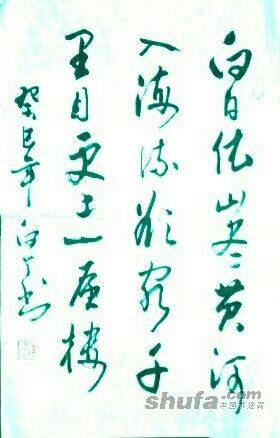 白日依山尽黄河
入海流欲穷千
里目更上一层楼
癸巳年
shufa.com
中国书法网